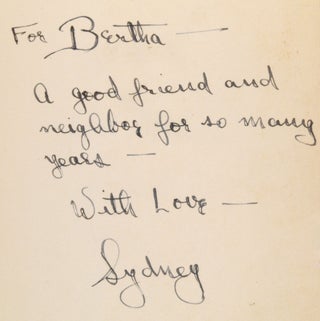 For Bertha —
A good friend and
neighbor for so many
years —
With Love —
Sydney